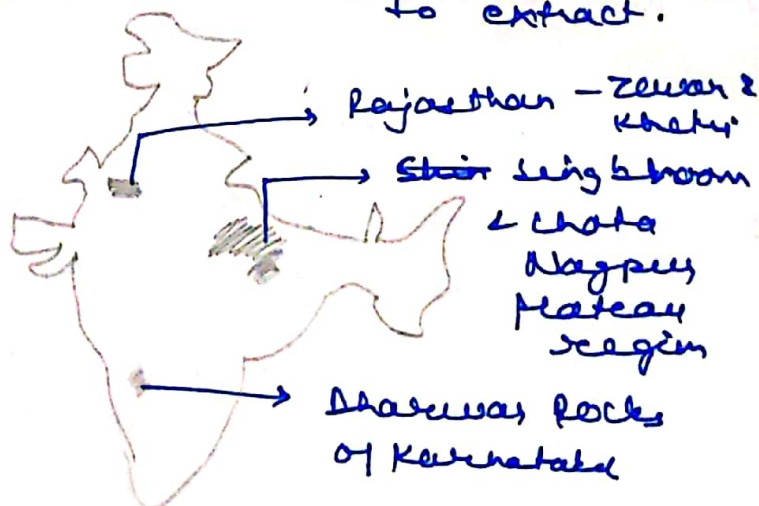 to extract.
Rajasthan – Zewar &
Khetri
Singbhoom
& Chota
Nagpur
Plateau
region
Dharwar Rocks
of Karnataka